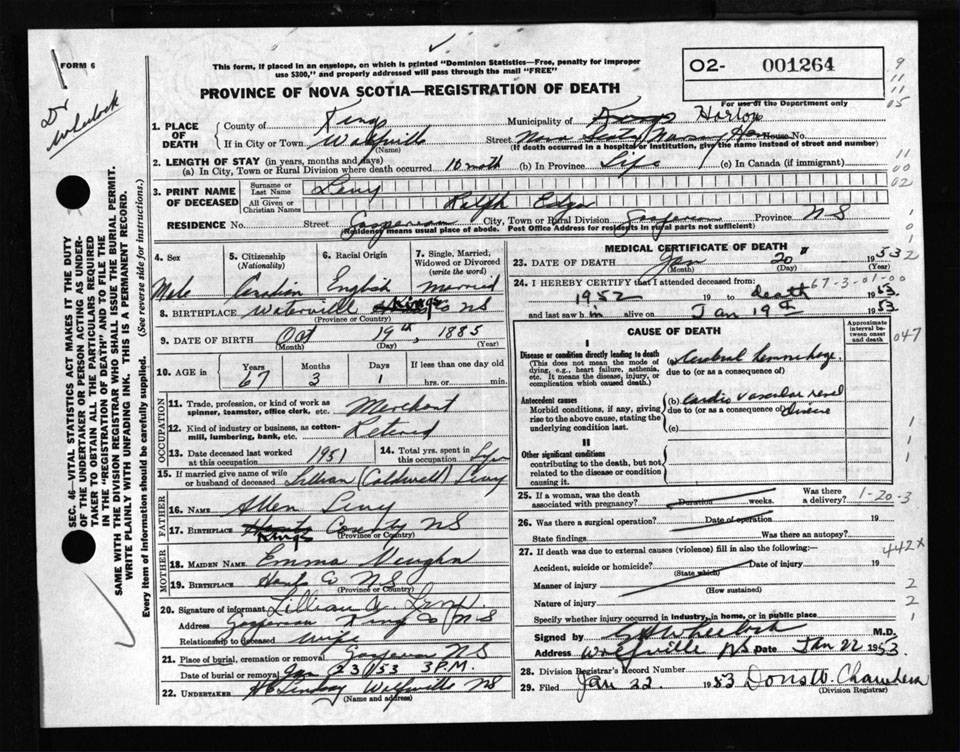 FORM 6
This form, if placed in an envelope, on which is printed "Dominion Statistics—Free, penalty for improper
use $300," and properly addressed will pass through the mail "FREE"
O2- 001264
9
11
11
05
For use of the Department only
PROVINCE OF NOVA SCOTIA—REGISTRATION OF DEATH
Dr
Wheelock
1. PLACE OF DEATH
County of Kings
Municipality of Kings Horton
If in City or Town Wolfville (Name)
Street Nova Scotia Nursing Ho House No.
(If death occurred in a hospital or institution, give the name instead of street and number)
2. LENGTH OF STAY (in years, months and days)
(a) In City, Town or Rural Division where death occurred 10 moth (b) In Province Life (c) In Canada (if immigrant)
11
00
02
3. PRINT NAME OF DECEASED
Surname or Last Name Levy
All Given or Christian Names Ralph Edgar
RESIDENCE No. Street Gaspereau City, Town or Rural Division Gaspereau Province NS
(Residence means usual place of abode. Post Office Address for residents in rural parts not sufficient)
4. Sex
Male
5. Citizenship (Nationality)
Canadian
6. Racial Origin
English
7. Single, Married, Widowed or Divorced (write the word)
Married
8. BIRTHPLACE Waterville Kings Co NS
(Province or Country)
9. DATE OF BIRTH Oct 19th 1885
(Month) (Day) (Year)
10. AGE in Years 67 Months 3 Days 1 If less than one day hrs. or min.
OCCUPATION
11. Trade, profession, or kind of work as spinner, teamster, office clerk, etc. Merchant
12. Kind of industry or business, as cotton-mill, lumbering, bank, etc. Retired
13. Date deceased last worked at this occupation 1951
14. Total yrs. spent in this occupation
15. If married give name of wife or husband of deceased Lillian (Caldwell) Levy
FATHER
16. NAME Allen Levy
17. BIRTHPLACE Hants Kings County NS
(Province or Country)
MOTHER
18. MAIDEN NAME Emma Vaughn
19. BIRTHPLACE Hants Co NS
(Province or Country)
20. Signature of informant Lillian Levy
Address Gaspereau Kings Co NS
Relationship to deceased wife
21. Place of burial, cremation or removal Gaspereau NS
Date of burial or removal Jan 23 1953 3 P.M.
22. UNDERTAKER Lindsay Wolfville NS
(Name and address)
MEDICAL CERTIFICATE OF DEATH
23. DATE OF DEATH Jan 20" 1953
(Month) (Day) (Year)
24. I HEREBY CERTIFY that I attended deceased from:
67-3-01-00
1952 19 to death 1953
and last saw h im alive on Jan 19th 1953
CAUSE OF DEATH
Approximate interval between onset and death
047
I
Disease or condition directly leading to death
(This does not mean the mode of dying, e.g., heart failure, asthenia, etc. It means the disease, injury, or complication which caused death.)
(a) Cerebral hemorrhage
due to (or as a consequence of)
Antecedent causes
Morbid conditions, if any, giving rise to the above cause, stating the underlying condition last.
(b) Cardio vascular renal
due to (or as a consequence of) disease
(c)
II
Other significant conditions
contributing to the death, but not related to the disease or condition causing it.
25. If a woman, was the death associated with pregnancy? Duration weeks. Was there a delivery?
1-20-3
26. Was there a surgical operation? Date of operation 19
State findings Was there an autopsy?
27. If death was due to external causes (violence) fill in also the following:—
442x
Accident, suicide or homicide? Date of injury 19
(State which)
Manner of injury
(How sustained)
2
Nature of injury
2
Specify whether injury occurred in industry, in home, or in public place
1
Signed by Wheelock M.D.
Address Wolfville NS Date Jan 22 1953.
28. Division Registrar's Record Number
29. Filed Jan 22 1953 Doris W. Chambers
(Division Registrar)
SEC. 46—VITAL STATISTICS ACT MAKES IT THE DUTY
OF THE UNDERTAKER OR PERSON ACTING AS UNDER-
TAKER TO OBTAIN ALL THE PARTICULARS REQUIRED
IN THE "REGISTRATION OF DEATH" AND TO FILE THE
SAME WITH THE DIVISION REGISTRAR WHO SHALL ISSUE THE BURIAL PERMIT.
WRITE PLAINLY WITH UNFADING INK. THIS IS A PERMANENT RECORD.
Every item of information should be carefully supplied. (See reverse side for instructions.)